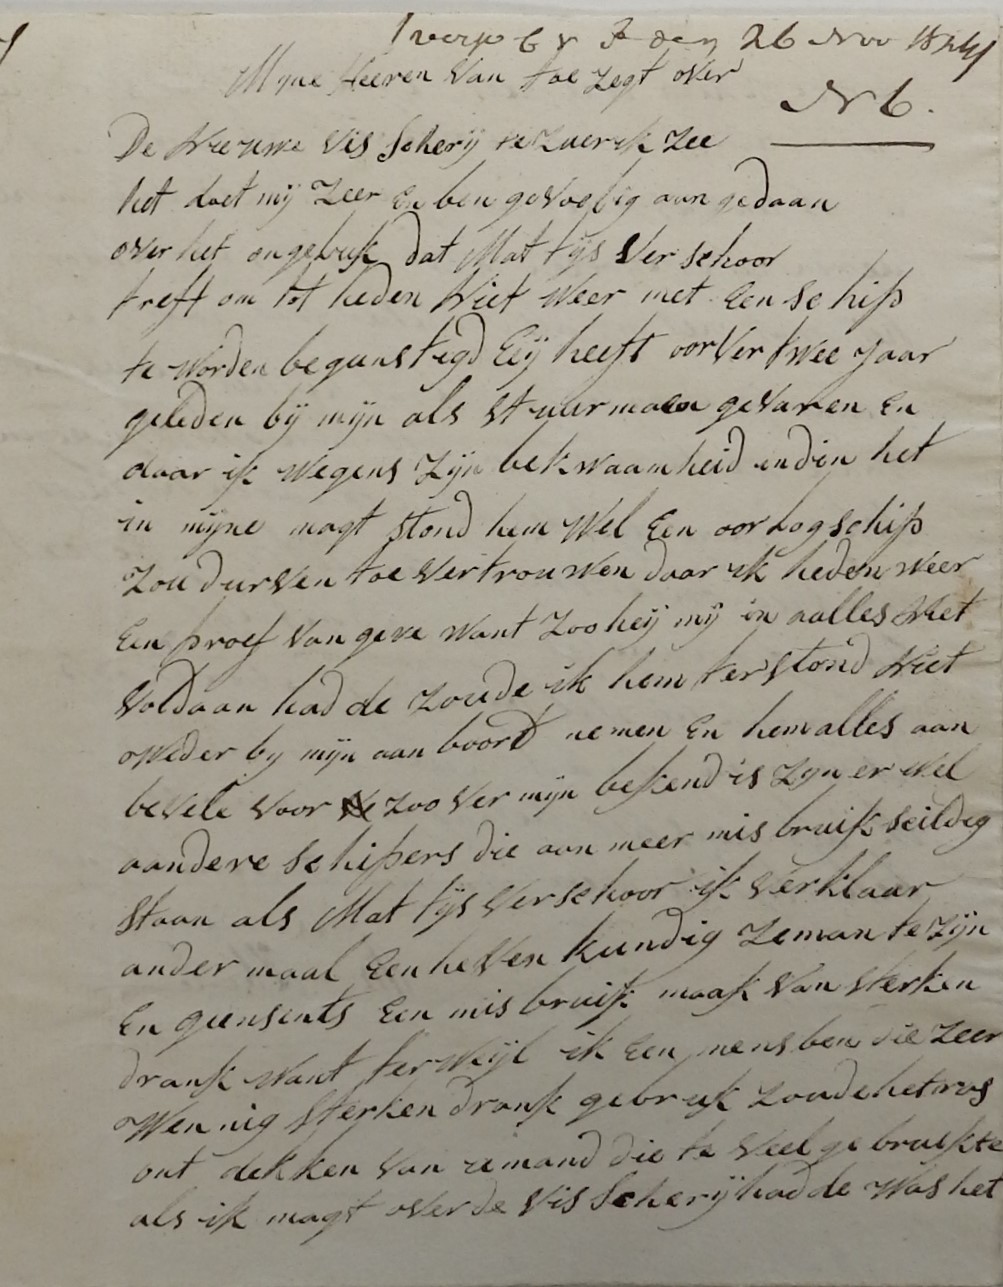 den 26 Nov 1824
Myne Heeren Van toe zegt over
N 6.
De Nieuwe Vis Scherij te Zuerik Zee
het doet mij Zeer En ben gevoelig aan gedaan
over het ongeluk dat Mat tijs Ver schoor
treft om tot heden Niet Weer met Een Schip
te Worden begunstegd Eij heeft oorver twee Jaar
geleden bij mijn als Stuurman gevaren En
daar ik Wegens Zijn bekwaamheid indien het
in mijne magt stond hem Wel Een oorlogschip
Zou durven toe vertrouwen daar ik heden weer
Een proef Van geve Want Zoo heij mij in aalles Niet
Voldaan hadde zoude ik hem ter stond Niet
Weder by mijn aan boord nemen En hem alles aan
bevele Voor Zoo Ver mijn bekend is Zyn er Wel
aandere Schippers die aan meer mis bruik scildeg
Staan als Mat tijs Verschoor ik Verklaar
ander maal Een heVen kundig Zeman te Zijn
En geensints Een mis bruik maak Van Sterken
drank Want ter Wijl ik Een mens ben die Zeer
Wennig Sterken drank gebruik Zoude het ras
ont dekken Van iemand die te Veel ge bruikte
als ik magt over de Vis Scherij hadde Was het